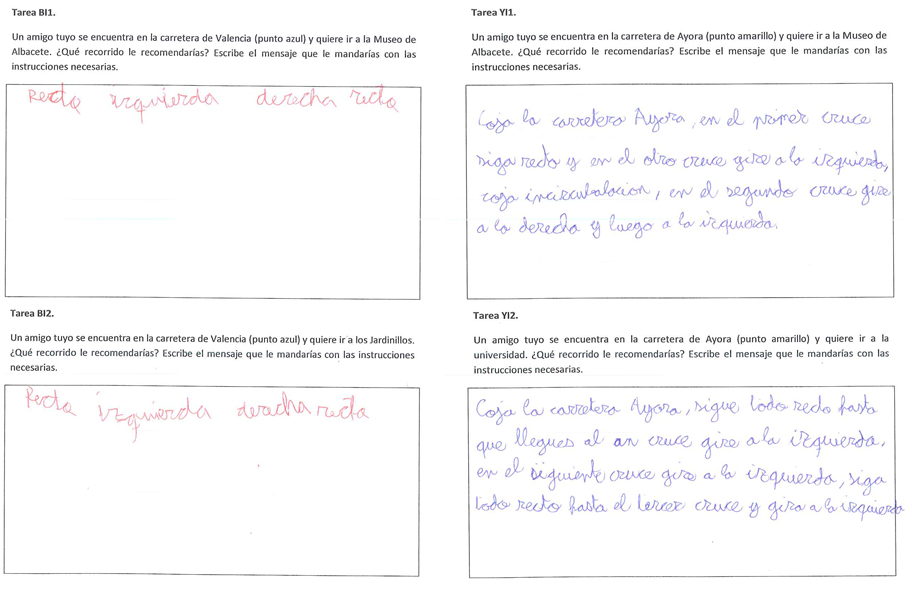 Tarea BI1.
Un amigo tuyo se encuentra en la carretera de Valencia (punto azul) y quiere ir a la Museo de
Albacete. ¿Qué recorrido le recomendarías? Escribe el mensaje que le mandarías con las
instrucciones necesarias.
Recta izquierda derecha recta
Tarea BI2.
Un amigo tuyo se encuentra en la carretera de Valencia (punto azul) y quiere ir a los Jardinillos.
¿Qué recorrido le recomendarías? Escribe el mensaje que le mandarías con las instrucciones
necesarias.
Recta izquierda deracha recta
Tarea YI1.
Un amigo tuyo se encuentra en la carretera de Ayora (punto amarillo) y quiere ir a la Museo de
Albacete. ¿Qué recorrido le recomendarías? Escribe el mensaje que le mandarías con las
instrucciones necesarias.
Coja la carretera Ayora, en el primer cruce
siga recto y en el otro cruce gire a la izquierda,
coja incircubalacion, en el segundo cruce gire
a la derecha y luego a la izquierda.
Tarea YI2.
Un amigo tuyo se encuentra en la carretera de Ayora (punto amarillo) y quiere ir a la
universidad. ¿Qué recorrido le recomendarías? Escribe el mensaje que le mandarías con las
instrucciones necesarias.
Coja la carretera Ayora, sigue todo recto hasta
que llegues al an cruce gire a la izquierda,
en el siguiente cruce gire a la izquierda, siga
todo recto hasta el tercer cruce y gira a la izquierda